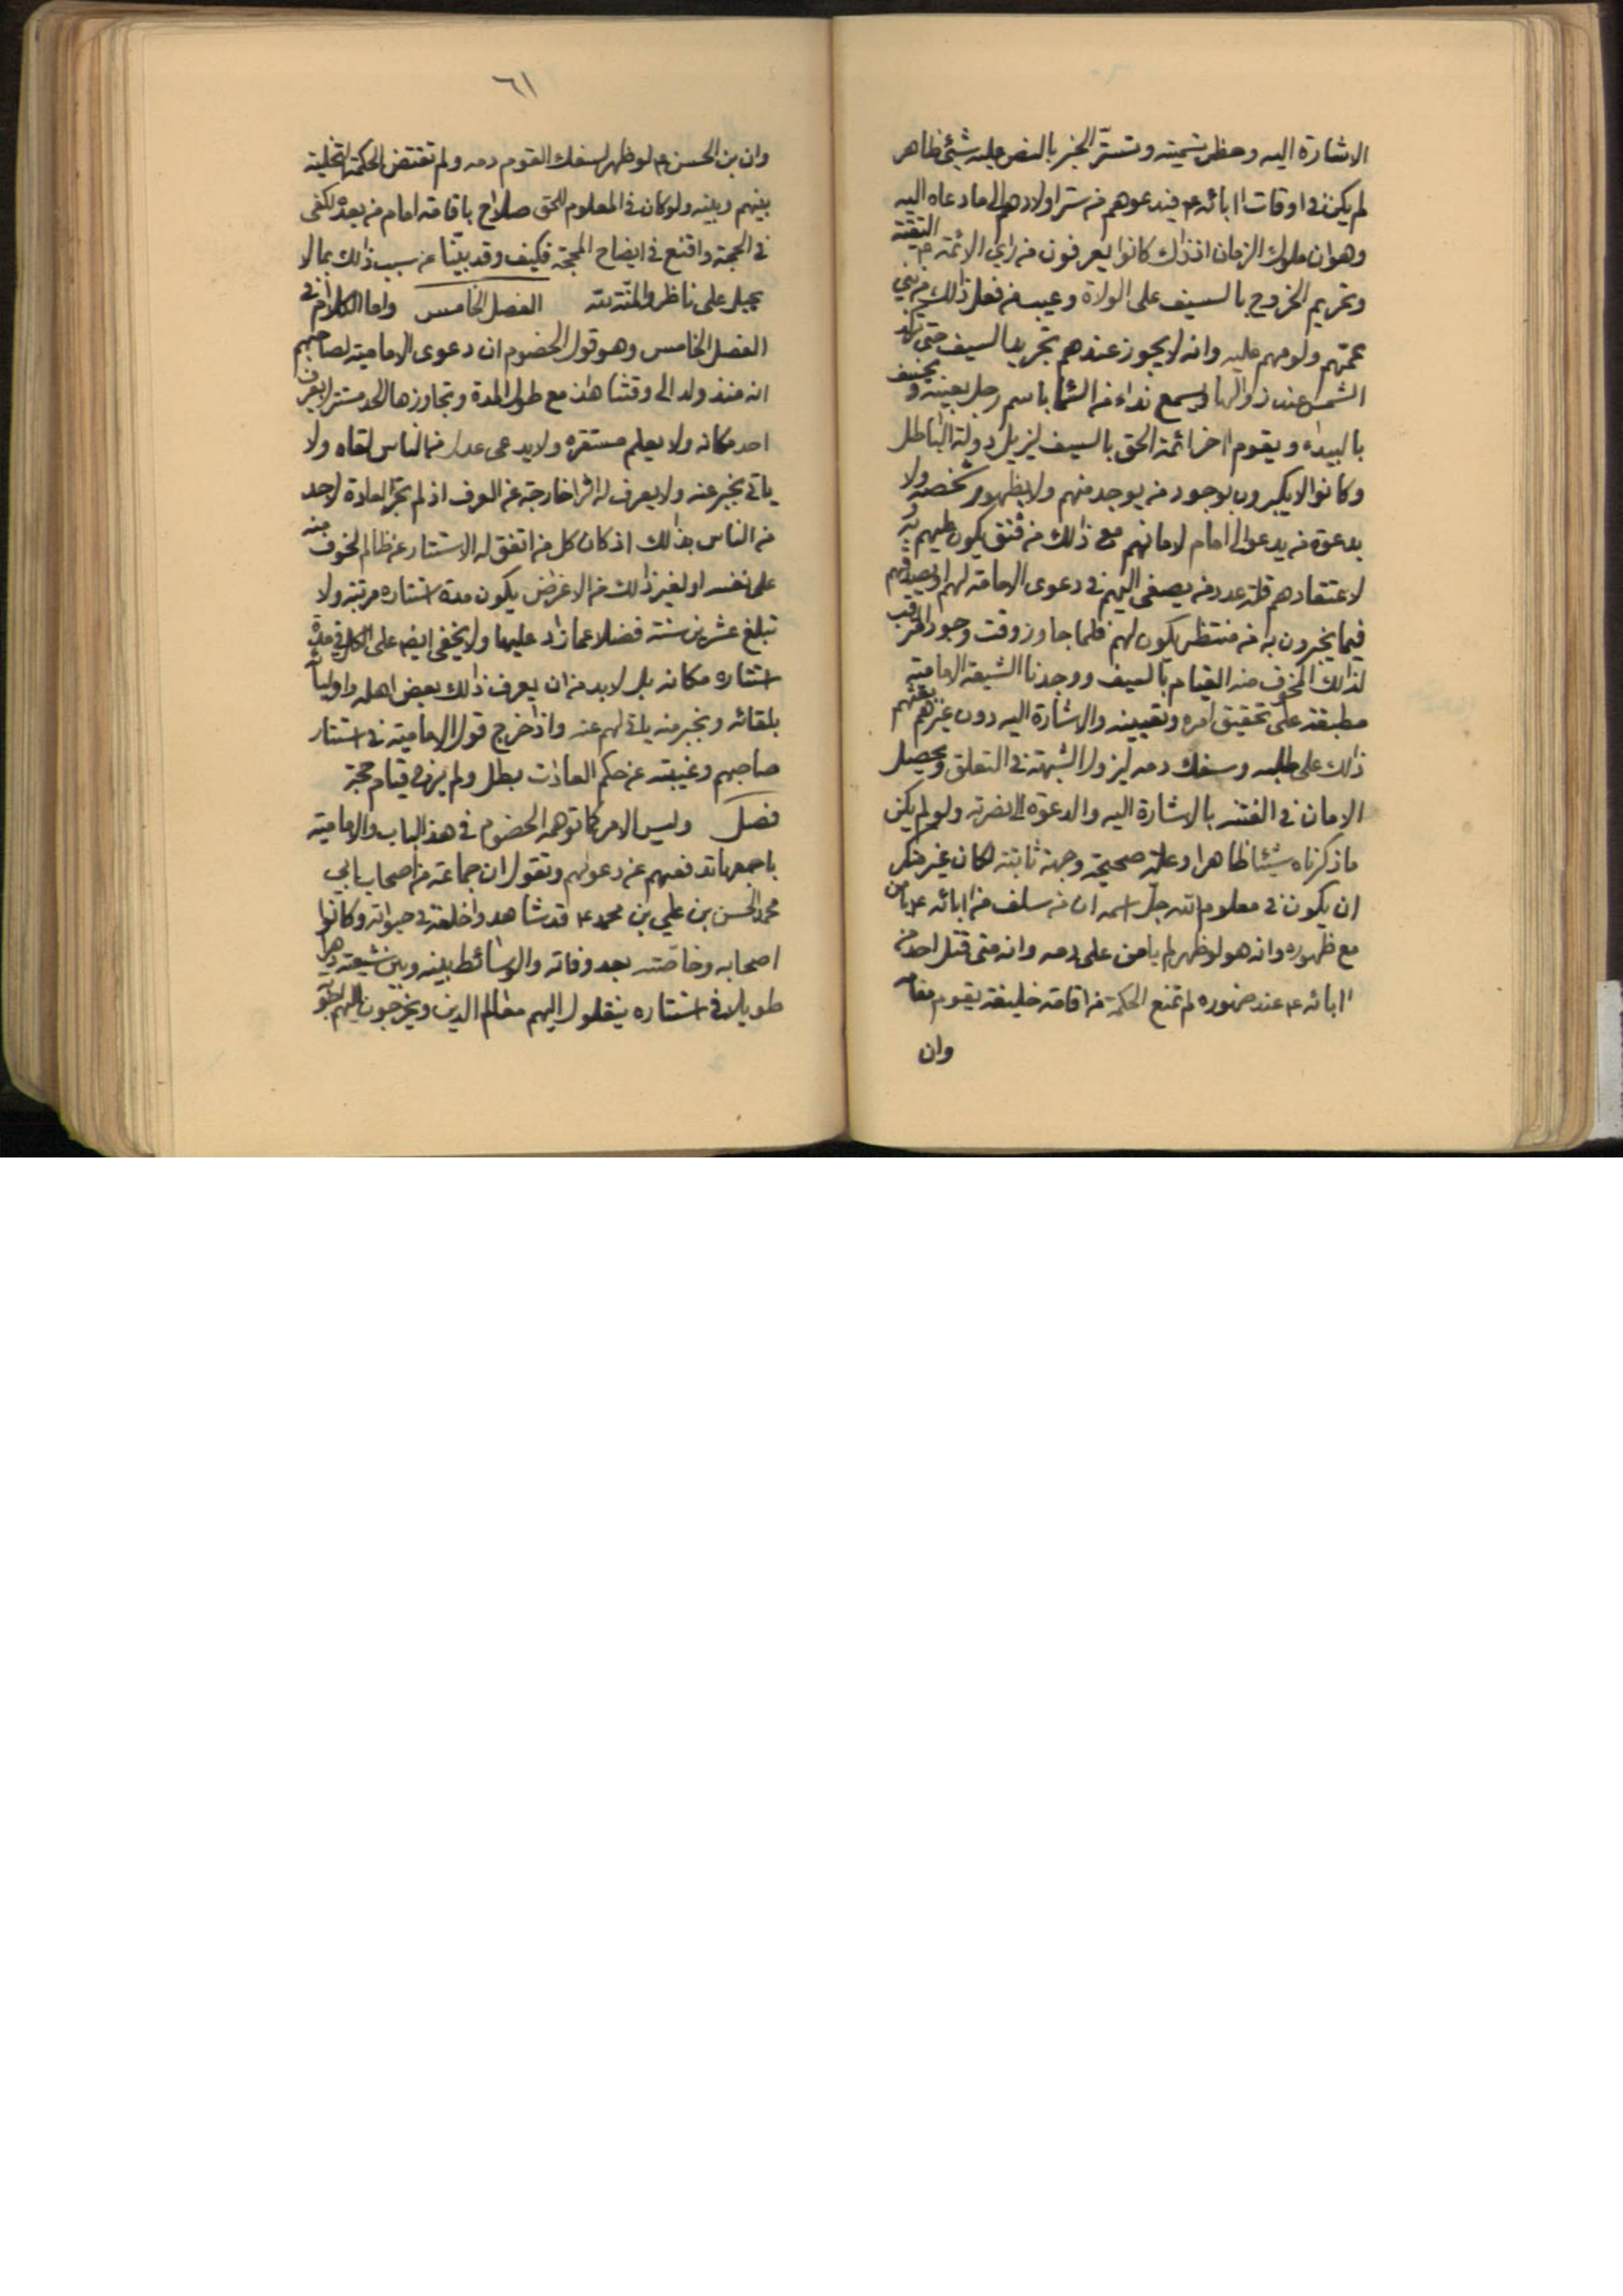 الاشارة اليه وحظر تسميته وتستر الخبر بالنص عليه شيئ ظاهر
لم يكن في اوقات اابائه ع فيدعوهم من ستر اولادهم الى ما دعاه اليه
وهو ان ملوك الزمان اذذاك كانوا يعرفون من راي الائمة ع التقية
وتحريم الخروج بالسيف على الولاة وعيب من فعل ذلك من بني
عمتهم ولومهم عليه وانه لا يجوز عندهم تجريد السيف حتى تركد
الشمس عند زوالها ويسمع نداء من السماء باسم رجل بعينه ويخسف
بالبيداء ويقوم اخر ائمة الحق بالسيف ليزيل دولة الباطل
وكانوا لا يكبرون بوجود من يوجد منهم ولا بظهور شخصه ولا
بدعوة من يدعوا الى امام لامانهم مع ذلك من فتق يكون عليهم به و
لاعتقادهم قلة عدد من يصغى اليهم في دعوى الامامة لهم او يصدقهم
فيما يخبرون به من منتظر يكون لهم فلما جاوز وقت وجود المترقب
لذلك المخوف منه القيام بالسيف ووجدنا الشيعة الامامية
مطبقة على تحقيق امره وتعيينه والاشارة اليه دون غيرهم بعثهم
ذلك على طلبه وسفك دمه ليزول الشبهة في التعلق ويحصل
الامان في الفتنة بالاشارة اليه والدعوة الى نصرته ولو لم يكن
ما ذكرناه شيئا ظاهرا وعلة صحيحة وجهة ثابتة لكان غير منكر
ان يكون في معلوم الله جل اسمه ان من سلف من ابائه ع يأمن
مع ظهوره وانه هو لو ظهر لم يامن على دمه وانه متى قتل احد من
اابائه ع عند ظهوره لم تمنع الحكمة من اقامة خليفة يقوم مقامه
وان
٦١
وان بن الحسن ع لو ظهر لسفك القوم دمه ولم تقتض الحكمة التخلية
بينهم وبينه ولو كان في المعلوم للحق صلاح باقامة امام من بعده لكفى
في الحجة واقنع في ايضاح المحجة فكيف وقد بينا عن سبب ذلك بما لا
يحيل على ناظر والمنة لله الفصل الخامس واما الكلام في
الفصل الخامس وهو قول الخصوم ان دعوى الامامية لصاحبهم
انه منذ ولد الى وقتنا هذا مع طول المدة وتجاوزها الحد مستتر لا يعرف
احد مكانه ولا يعلم مستقره ولا يدعى عدل من الناس لقاه ولا
ياتي بخبر عنه ولا يعرف له اثرا خارجة عن العرف اذ لم تجر العادة لاحد
من الناس بذلك اذ كان كل من اتفق له الاستتار عن ظالم لخوف منه
على نفسه او لغير ذلك من الاغراض يكون مدة استتاره مرتبة ولا
تبلغ عشرين سنة فضلا عما زاد عليها ولا يخفى ايضا على الكل في مدة
استتاره مكانه بل لابد من ان يعرف ذلك بعض اهله واوليائه
بلقائه وبخبر منه ياتي لهم عنه واذا خرج قول الامامية في استتار
صاحبهم وغيبته عن حكم العادات بطل ولم يرج قيام حجة
فصل وليس الامر كما توهمه الخصوم في هذا الباب والامامية
باجمعها تدفعهم عن دعواهم وتقول ان جماعة من اصحاب ابي
محمد الحسن بن علي بن محمد ع قد شاهدوا خلفه في حيوته وكانوا
اصحابه وخاصته بعد وفاته والوسائط بينه وبين شيعته دهرا
طويلا في استتاره ينقلول اليهم معالم الدين ويخرجون اليهم اجوبة